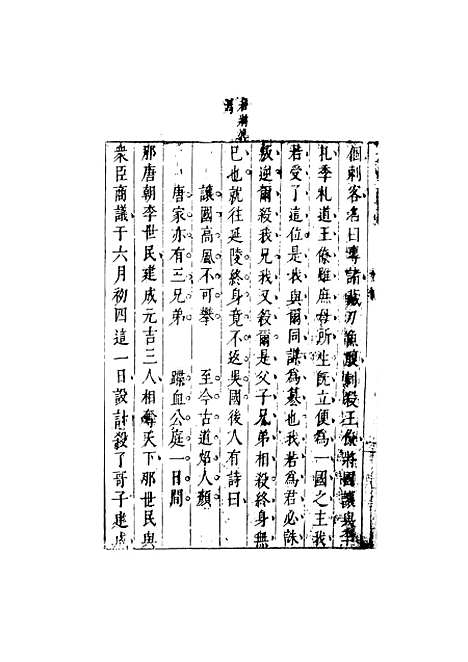 個刺客名曰專諸藏刃魚腹刺殺王僚將國讓與季
札季札道王僚雖庶母所生旣立便為一國之主我
若受了這位是我與爾同謀為墓也我若為君必誅
叛逆爾殺我兄我又殺爾是父子兄弟相殺終身無
已也就往延陵終身竟不返吳國後人有詩曰
讓國高風不可攀　至今古道焰人顏
唐家亦有三兄弟　蹀血公庭一日間
那唐朝李世民建成元吉三人相奪天下那世民與
衆臣商議于六月初四這一日設計殺了哥子建成